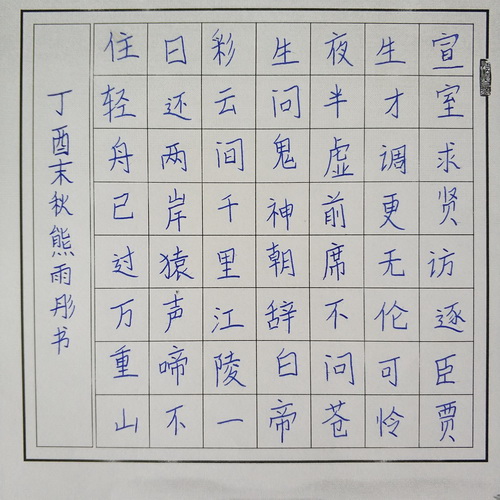 宣室求贤访逐臣贾
生才调更无伦可怜
夜半虚前席不问苍
生问鬼神朝辞白帝
彩云间千里江陵一
日还两岸猿声啼不
住轻舟已过万重山
丁酉末秋熊雨彤书